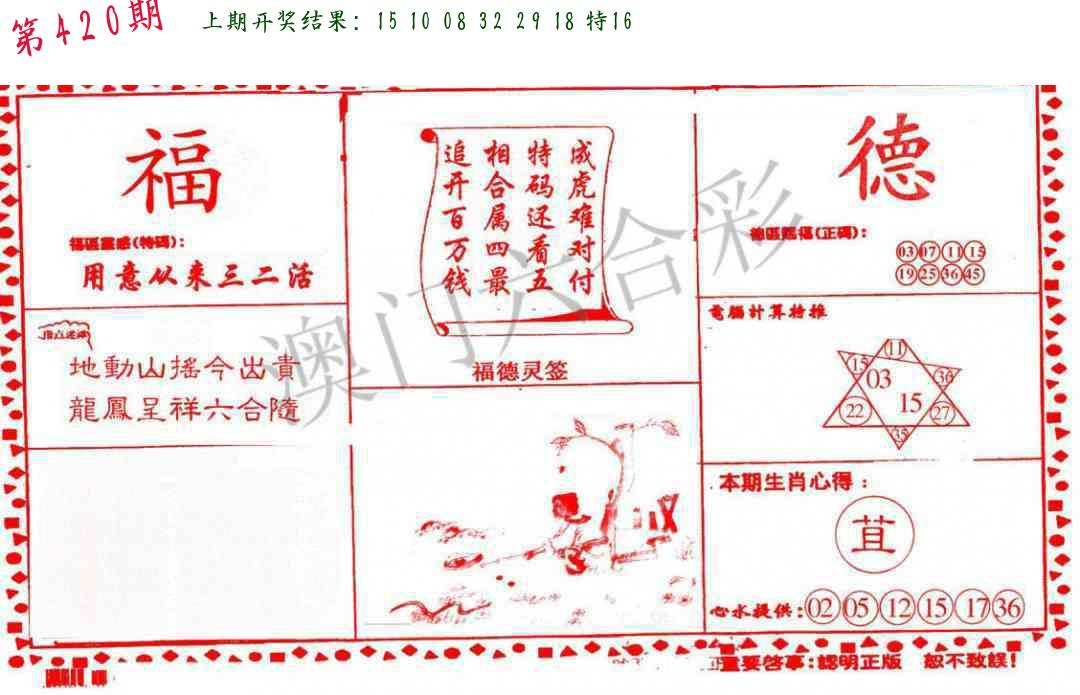 第420期
上期开奖结果: 15 10 08 32 29 18 特16
福
福區靈感(特碼):
用意从来三二活
地動山搖今出貴
龍鳳呈祥六合隨
成虎难对付
特码还看五
相合属四最
追开百万钱
福德灵签
德
德區賜福(正碼):
03 07 11 15
19 25 36 45
電腦計算特推
11
15 36
03
15
22 27
35
本期生肖心得:
苴
心水提供: 02 05 12 15 17 36
重要啓事:認明正版 恕不致誤!
澳门六合彩